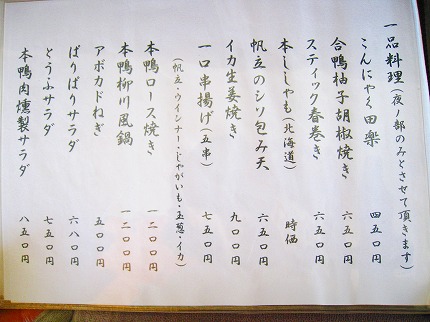 一品料理(夜ノ部のみとさせて頂きます)
こんにゃく田楽 四五〇円
合鴨柚子胡椒焼き 六五〇円
スティック春巻き 六五〇円
本ししゃも(北海道) 時価
帆立のシソ包み天 六五〇円
イカ生姜焼き 九〇〇円
一口串揚げ(五串) 七五〇円
(帆立・ウインナー・じゃがいも・玉葱・イカ)
本鴨ロース焼き 一二〇〇円
本鴨柳川風鍋 一二〇〇円
アボカドねぎ 五〇〇円
ぱりぱりサラダ 六八〇円
とうふサラダ 七五〇円
本鴨肉燻製サラダ 八五〇円